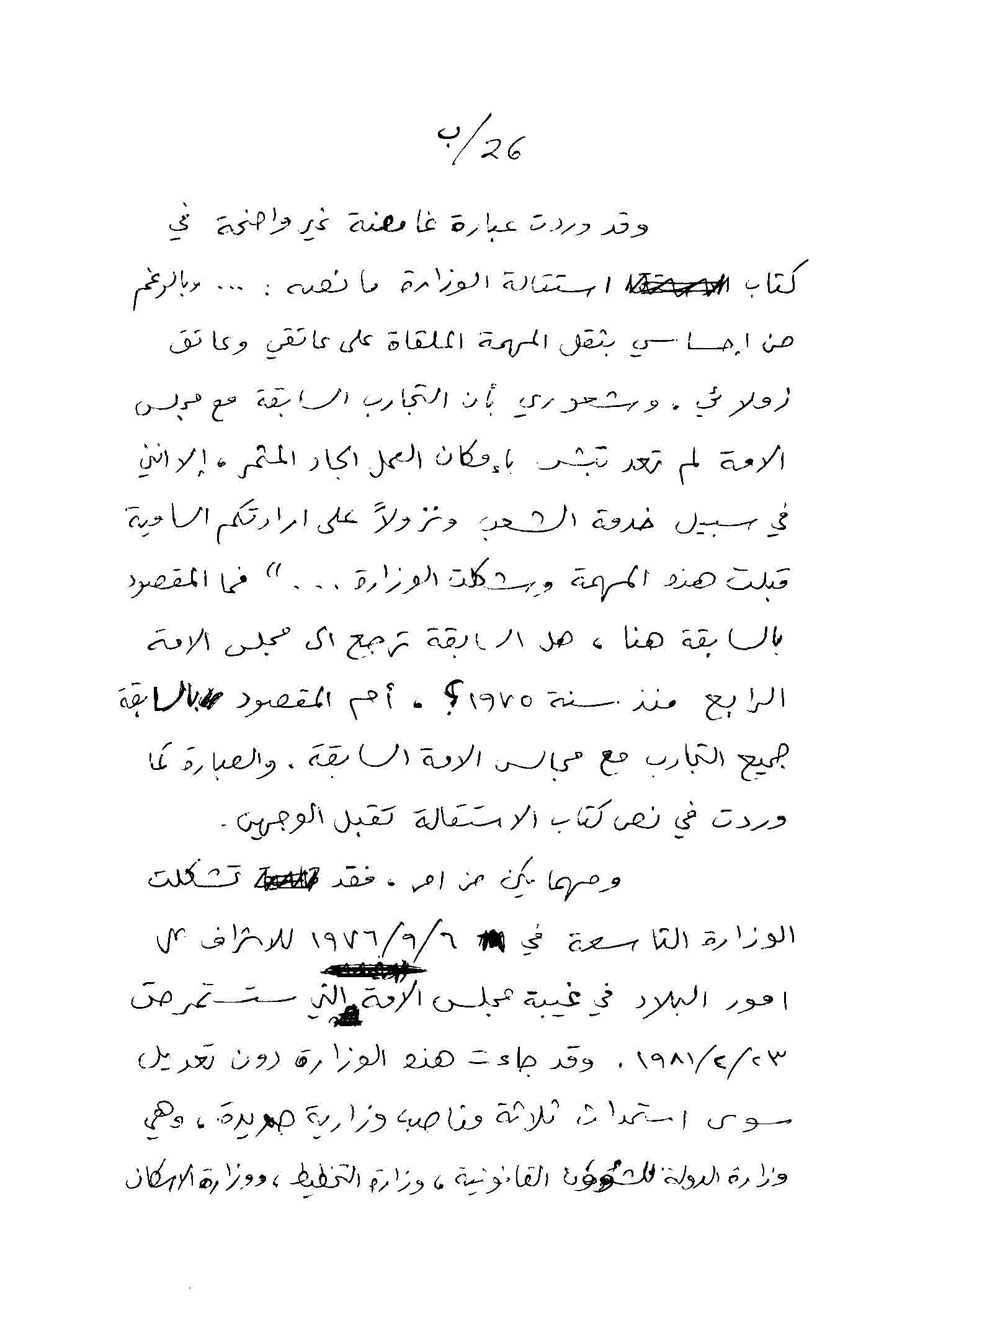 26/ب
وقد وردت عبارة غامضة غير واضحة في
كتاب استقالة الوزارة ما نصه : ... وبالرغم
من إحساسي بثقل المهمة الملقاة على عاتقي وعاتق
زملائي . وشعوري بأن التجارب السابقة مع مجلس
الامة لم تعد تبشر بإمكان العمل الجاد المثمر ، إلا انني
في سبيل خدمة الشعب ونزولاً على ارادتكم السامية
قبلت هذه المهمة وشكلت الوزارة ... " فما المقصود
بالسابقة هنا ، هل السابقة ترجع الى مجلس الامة
الرابع منذ سنة ١٩٧٥ ؟ . أم المقصود بالسابقة
جميع التجارب مع مجالس الامة السابقة . والعبارة كما
وردت في نص كتاب الاستقالة تقبل الوجهين .
ومهما يكن من امر . فقد تشكلت
الوزارة التاسعة في ١٩٧٦/٩/٦ للاشراف على
امور البلاد في غيبة مجلس الامة التي ستستمر حتى
١٩٨١/٢/٢٣ . وقد جاءت هذه الوزارة دون تعديل
سوى استحداث ثلاثة مناصب وزارية جديدة ، وهي
وزارة الدولة للشؤون القانونية ، وزارة التخطيط ، ووزارة الاسكان